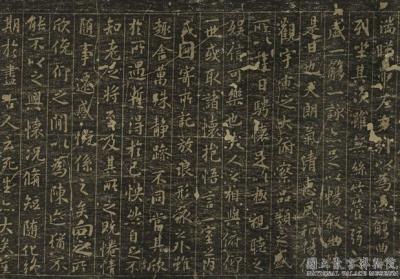 湍暎帶左右引以為流觴曲
列坐其次雖無絲竹管弦
盛一觴一詠亦足以暢敘
是日也天朗氣清惠風和
觀宇宙之大俯察品類之
所以遊目騁懷足以極視聽之
娛信可樂也夫人之相與俯
一世或取諸懷抱悟言一室之內
或因寄所託放浪形骸之外雖
趣舍萬殊靜躁不同當其欣
於所遇暫得於己快然自足
知老之將至及其所之既惓
隨事遷感慨係之矣向之
欣俛仰之間以為陳迹猶
能不以之興懷況脩短隨化
期於盡古人云死生亦大矣
國立故宮博物院